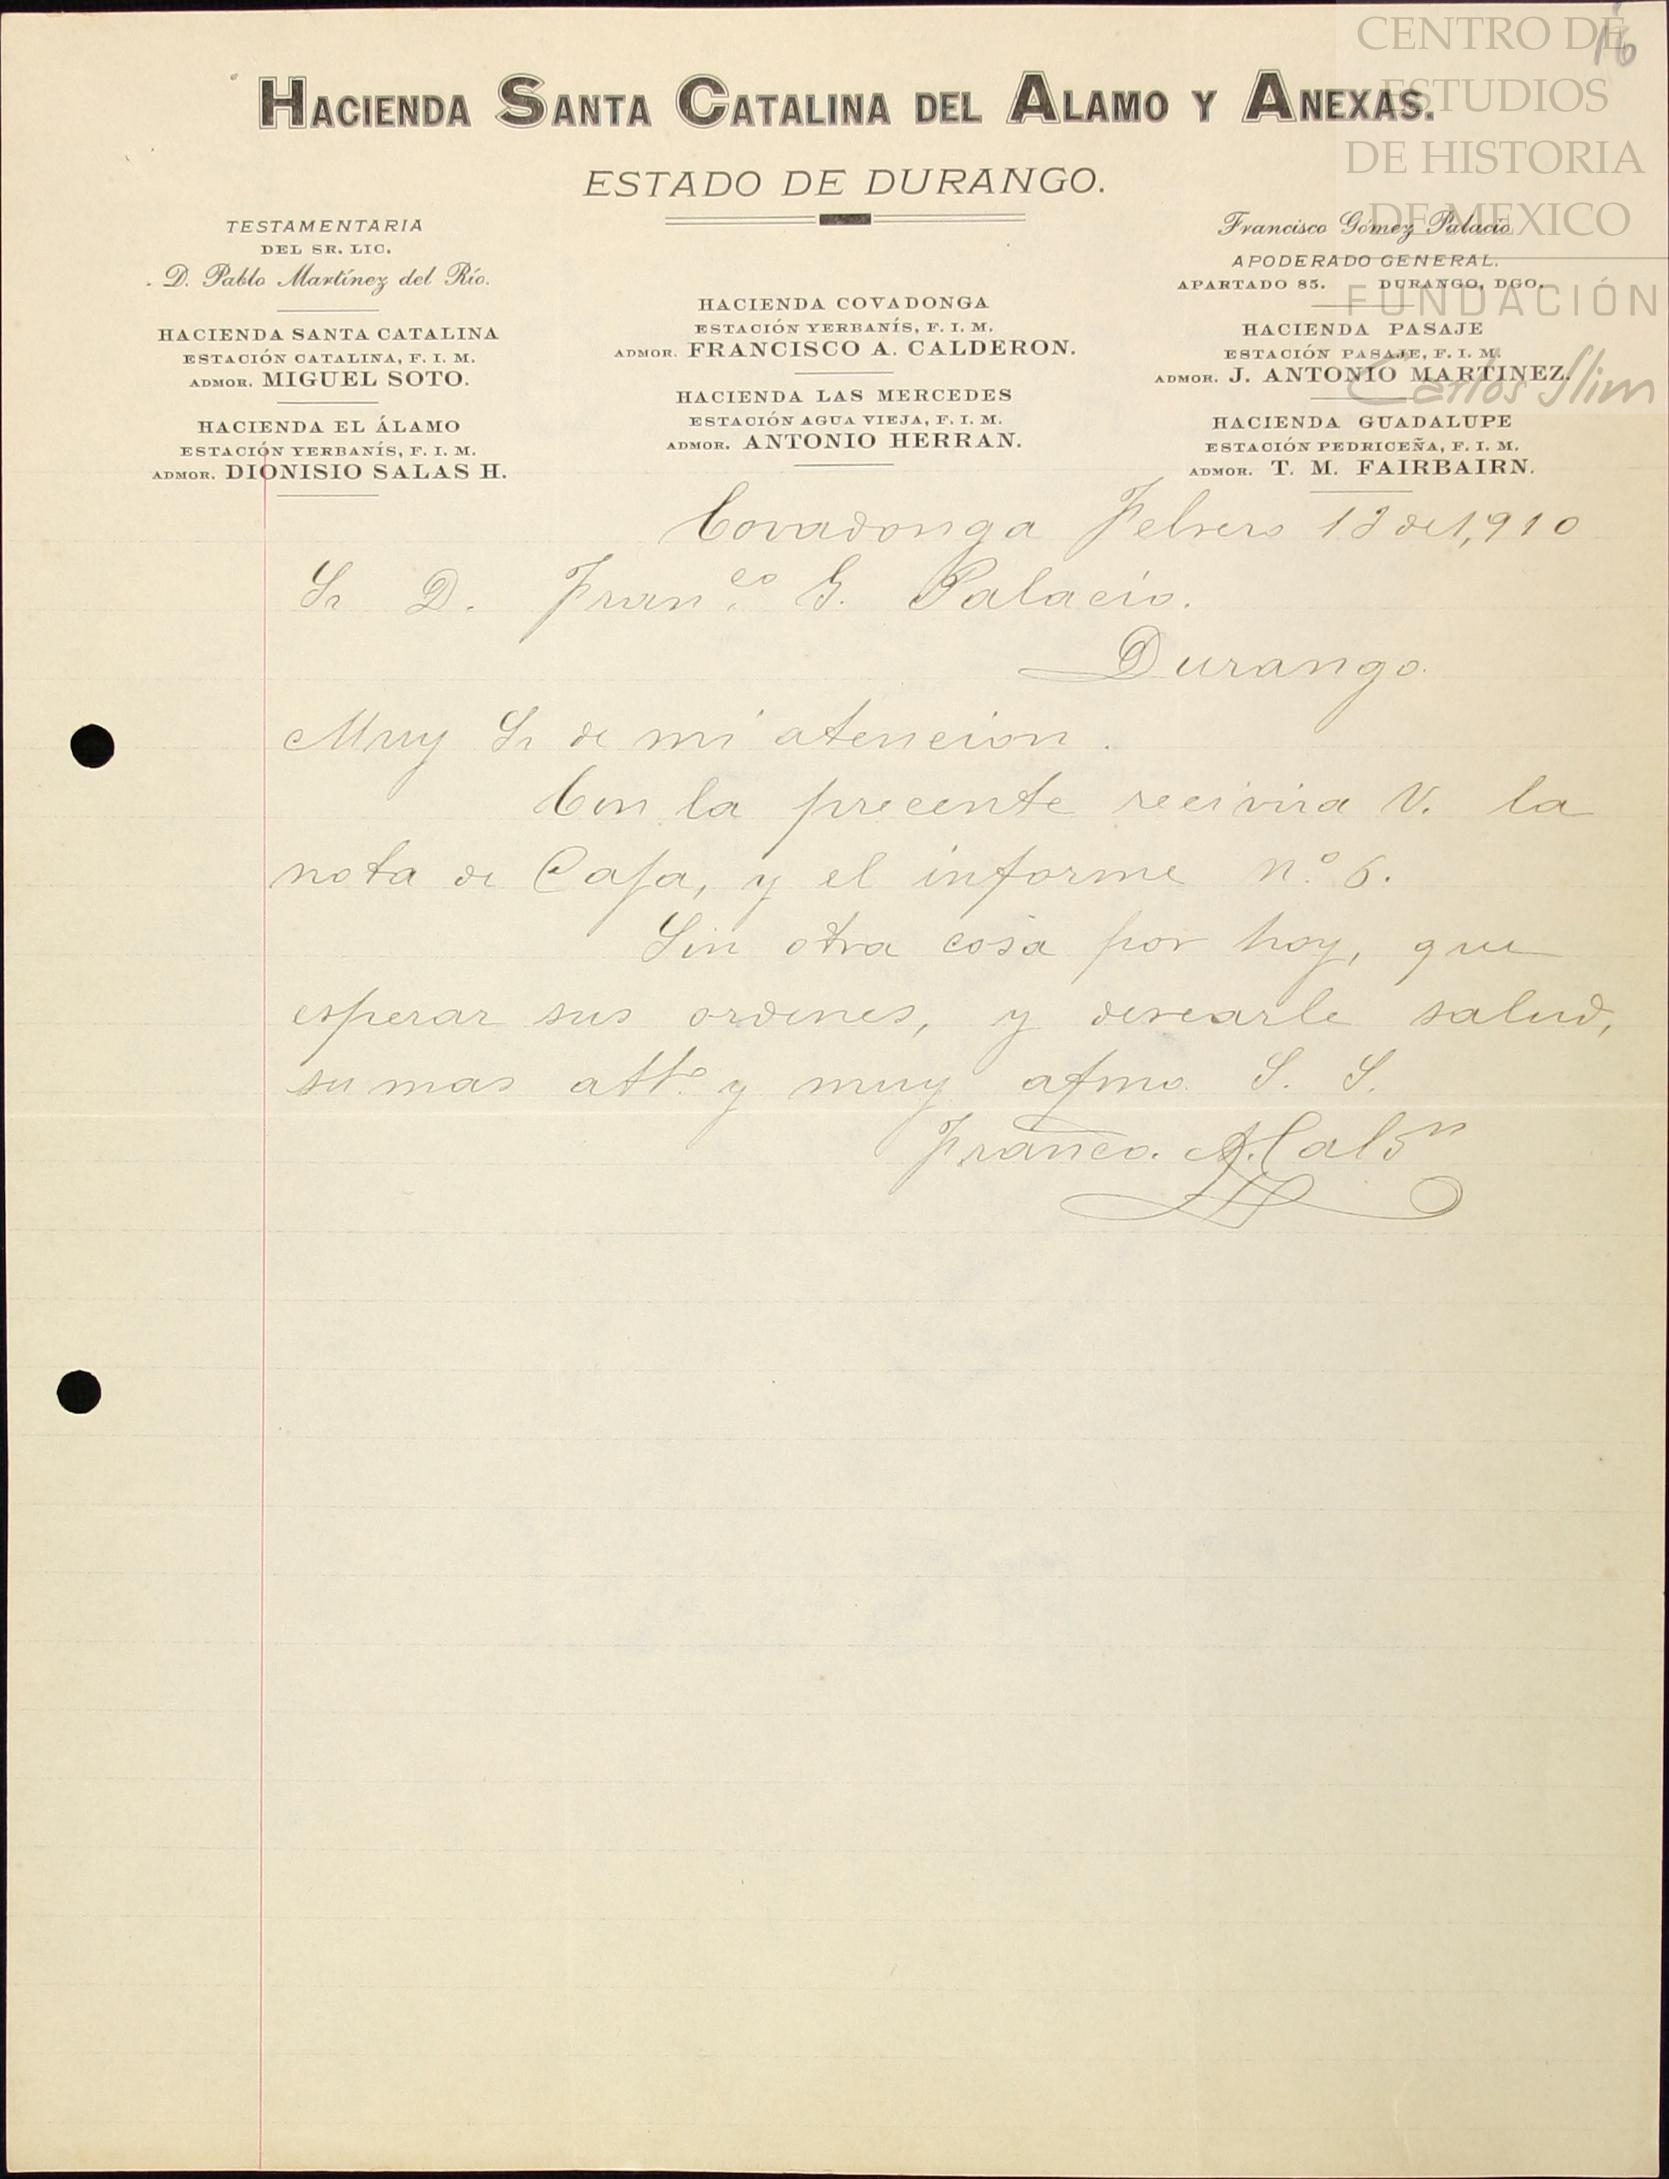 CENTRO DE
ESTUDIOS
DE HISTORIA
DE MEXICO
FUNDACIÓN
Carlos Slim
16
HACIENDA SANTA CATALINA DEL ALAMO Y ANEXAS.
ESTADO DE DURANGO.
TESTAMENTARIA
DEL SR. LIC.
D. Pablo Martínez del Río.
HACIENDA SANTA CATALINA
ESTACIÓN CATALINA, F. I. M.
ADMOR. MIGUEL SOTO.
HACIENDA EL ÁLAMO
ESTACIÓN YERBANÍS, F. I. M.
ADMOR. DIONISIO SALAS H.
HACIENDA COVADONGA
ESTACIÓN YERBANÍS, F. I. M.
ADMOR. FRANCISCO A. CALDERON.
HACIENDA LAS MERCEDES
ESTACIÓN AGUA VIEJA, F. I. M.
ADMOR. ANTONIO HERRAN.
Francisco Gómez Palacio
APODERADO GENERAL.
APARTADO 85. DURANGO, DGO.
HACIENDA PASAJE
ESTACIÓN PASAJE, F. I. M.
ADMOR. J. ANTONIO MARTINEZ.
HACIENDA GUADALUPE
ESTACIÓN PEDRICEÑA, F. I. M.
ADMOR. T. M. FAIRBAIRN.
Covadonga Febrero de 1,910
Sr D. Fran.co G. Palacio.
Durango.
Muy Sr de mi atencion.
Con la precente recivira V. la
nota de Caja, y el informe n.o 6.
Sin otra cosa por hoy, que
esperar sus ordenes, y desearle salud,
su mas atto. y muy afmo. S. S.
Franco. A. Calon